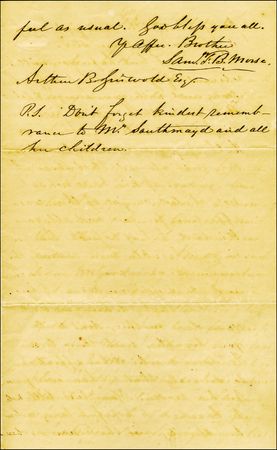 ful as usual. God bless you all.
Yr. Affec. Brother
Saml. F. B. Morse.
Arthur B. Griswold Esqr.
P.S. Don't forget kindest rememb-
rance to Mrs. Southmayd and all
her children.